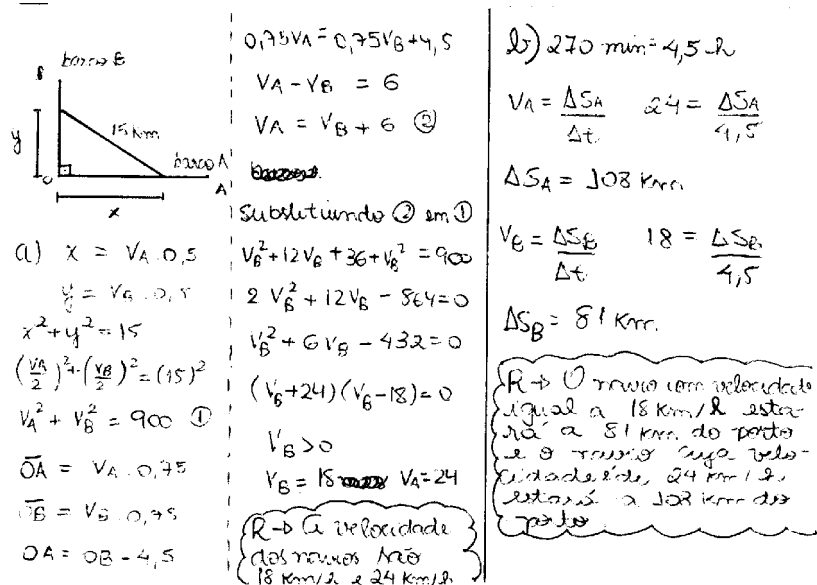 barco B
B
y
15 Km
barco A
O
A
x
a) x = VA . 0,5
y = VB . 0,5
x² + y² = 15
(VA/2)² + (VB/2)² = (15)²
VA² + VB² = 900 ①
OA = VA . 0,75
OB = VB . 0,75
OA = OB - 4,5
0,75VA = 0,75VB + 4,5
VA - VB = 6
VA = VB + 6 ②
Substituindo ② em ①
VB² + 12VB + 36 + VB² = 900
2 VB² + 12VB - 864 = 0
VB² + 6VB - 432 = 0
(VB + 24)(VB - 18) = 0
VB > 0
VB = 18 VA = 24
R→ A velocidade
dos navios são
18 Km/h e 24 Km/h
b) 270 min = 4,5 h
VA = ΔSA/Δt 24 = ΔSA/4,5
ΔSA = 108 Km
VB = ΔSB/Δt 18 = ΔSB/4,5
ΔSB = 81 Km.
R→ O navio com velocidade
igual a 18 Km/h esta-
rá a 81 Km do porto
e o navio cuja velo-
cidade é de, 24 Km/h,
estará a 108 Km do
porto